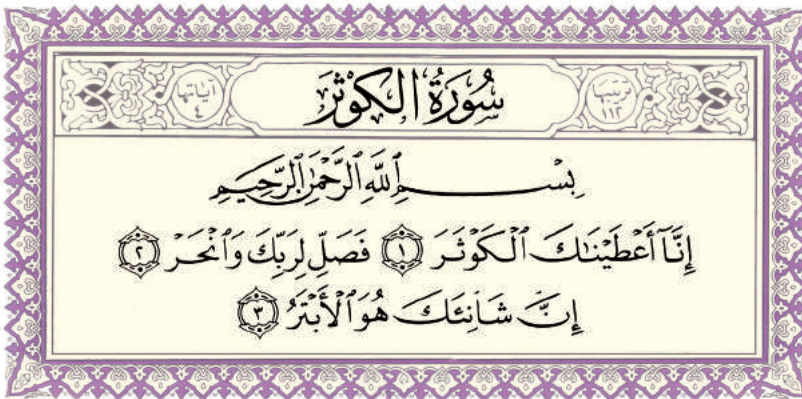 ترتيبها ١١٢ سُورَةُ الكَوثَرَ آياتها ٤
بِسْمِ ٱللَّهِ ٱلرَّحْمَٰنِ ٱلرَّحِيمِ
إِنَّآ أَعْطَيْنَٰكَ ٱلْكَوْثَرَ ١ فَصَلِّ لِرَبِّكَ وَٱنْحَرْ ٢
إِنَّ شَانِئَكَ هُوَ ٱلْأَبْتَرُ ٣